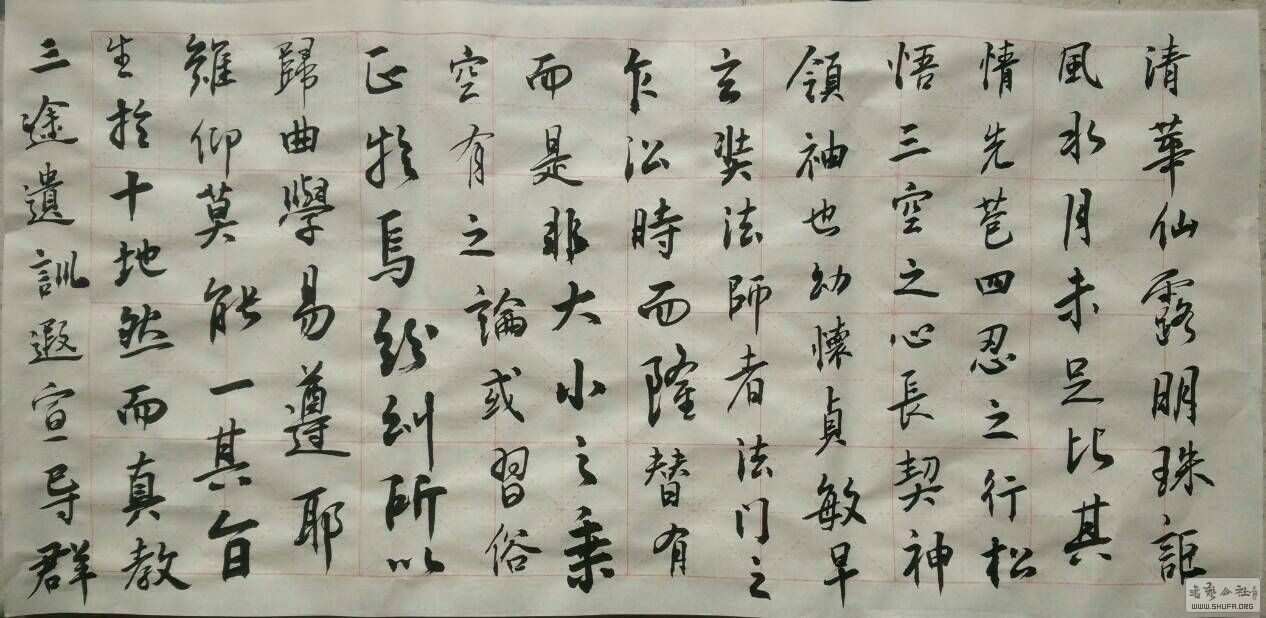 清華仙露明珠詎
風水月未足比其
情先苞四忍之行松
悟三空之心長契神
領袖也幼懷貞敏早
玄奘法師者法門之
乍沿時而隆替有
而是非大小之乘
空有之論或習俗
正於焉紛糾所以
歸曲學易遵耶
雖仰莫能一其旨
生於十地然而真教
三途遺訓遐宣导群
書藝公社
WWW.SHUFA.ORG